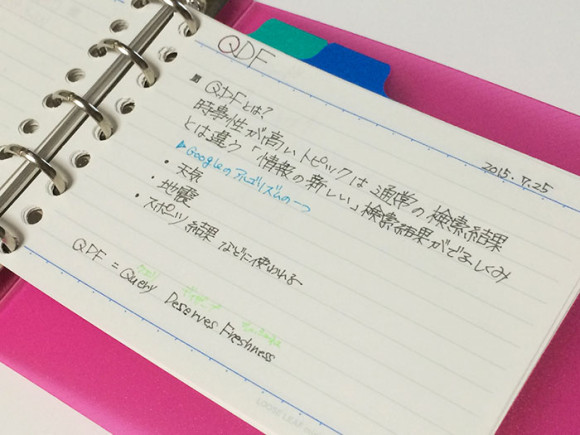 QDF
2015.7.25
■ QDFとは?
時事性が高いトピックは通常の検索結果
とは違う「情報の新しい」検索結果がでるしくみ
▶Googleのアルゴリズムの一つ
・天気
・地震
・スポーツ結果 などに使われる
クエリ
QDF = Query Deserves Freshness
LOOSE LEAF